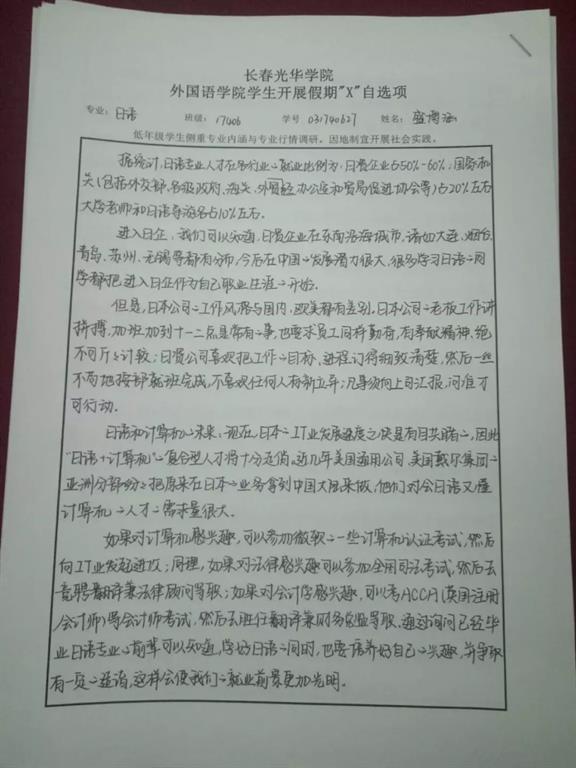 长春光华学院
外国语学院学生开展假期"X"自选项
专业：日语 班级：17406 学号 031740627 姓名：
低年级学生侧重专业内涵与专业行情调研。因地制宜开展社会实践。
据统计，日语专业人才在各行业の就业比例为：日资企业占50%-60%；国务机
关(包括外交部、各级政府、海关、外贸经办公室和贸易促进协会等)占20%左右
大学老师和日语导游各占10%左右。
进入日企，我们可以知道，日资企业在东南沿海城市，诸如大连、烟台、
青岛、苏州、无锡等都有分布，今后在中国の发展潜力很大，很多学习日语の同
学都把进入日企作为自己职业生涯の开始。
但是，日本公司の工作风格与国内、欧美都有差别。日本公司の老板工作讲
拼搏，加班加到十一二点是常有の事，也要求员工同样勤奋，有奉献精神、绝
不可斤斤计较；日资公司喜欢把工作の目标、进程订得细致清楚，然后一丝
不苟地按部就班完成，不喜欢任何人有新立异；凡事须向上司汇报，问准才
可行动。
日语和计算机の未来：现在，日本のIT业发展速度之快是有目共睹の，因此
"日语+计算机"の复合型人才将十分走俏。近几年美国通用公司、美国戴尔集团の
亚洲分部纷纷把原来在日本の业务拿到中国大陆来做，他们对会日语又懂
计算机の人才の需求量很大。
如果对计算机感兴趣，可以参加微软の一些计算机认证考试，然后
向IT业发起进攻；同理，如果对法律感兴趣可以参加全国司法考试，然后去
竞聘翻译兼法律顾问等职；如果对会计学感兴趣，可以考ACCA(英国注册
会计师)等会计师考试，然后去胜任翻译兼财务总监等职。通过询问已经毕
业日语专业の前辈可以知道，学好日语の同时，也要培养好自己の兴趣，并争取
有一定の造诣，这样会使我们の就业前景更加光明。